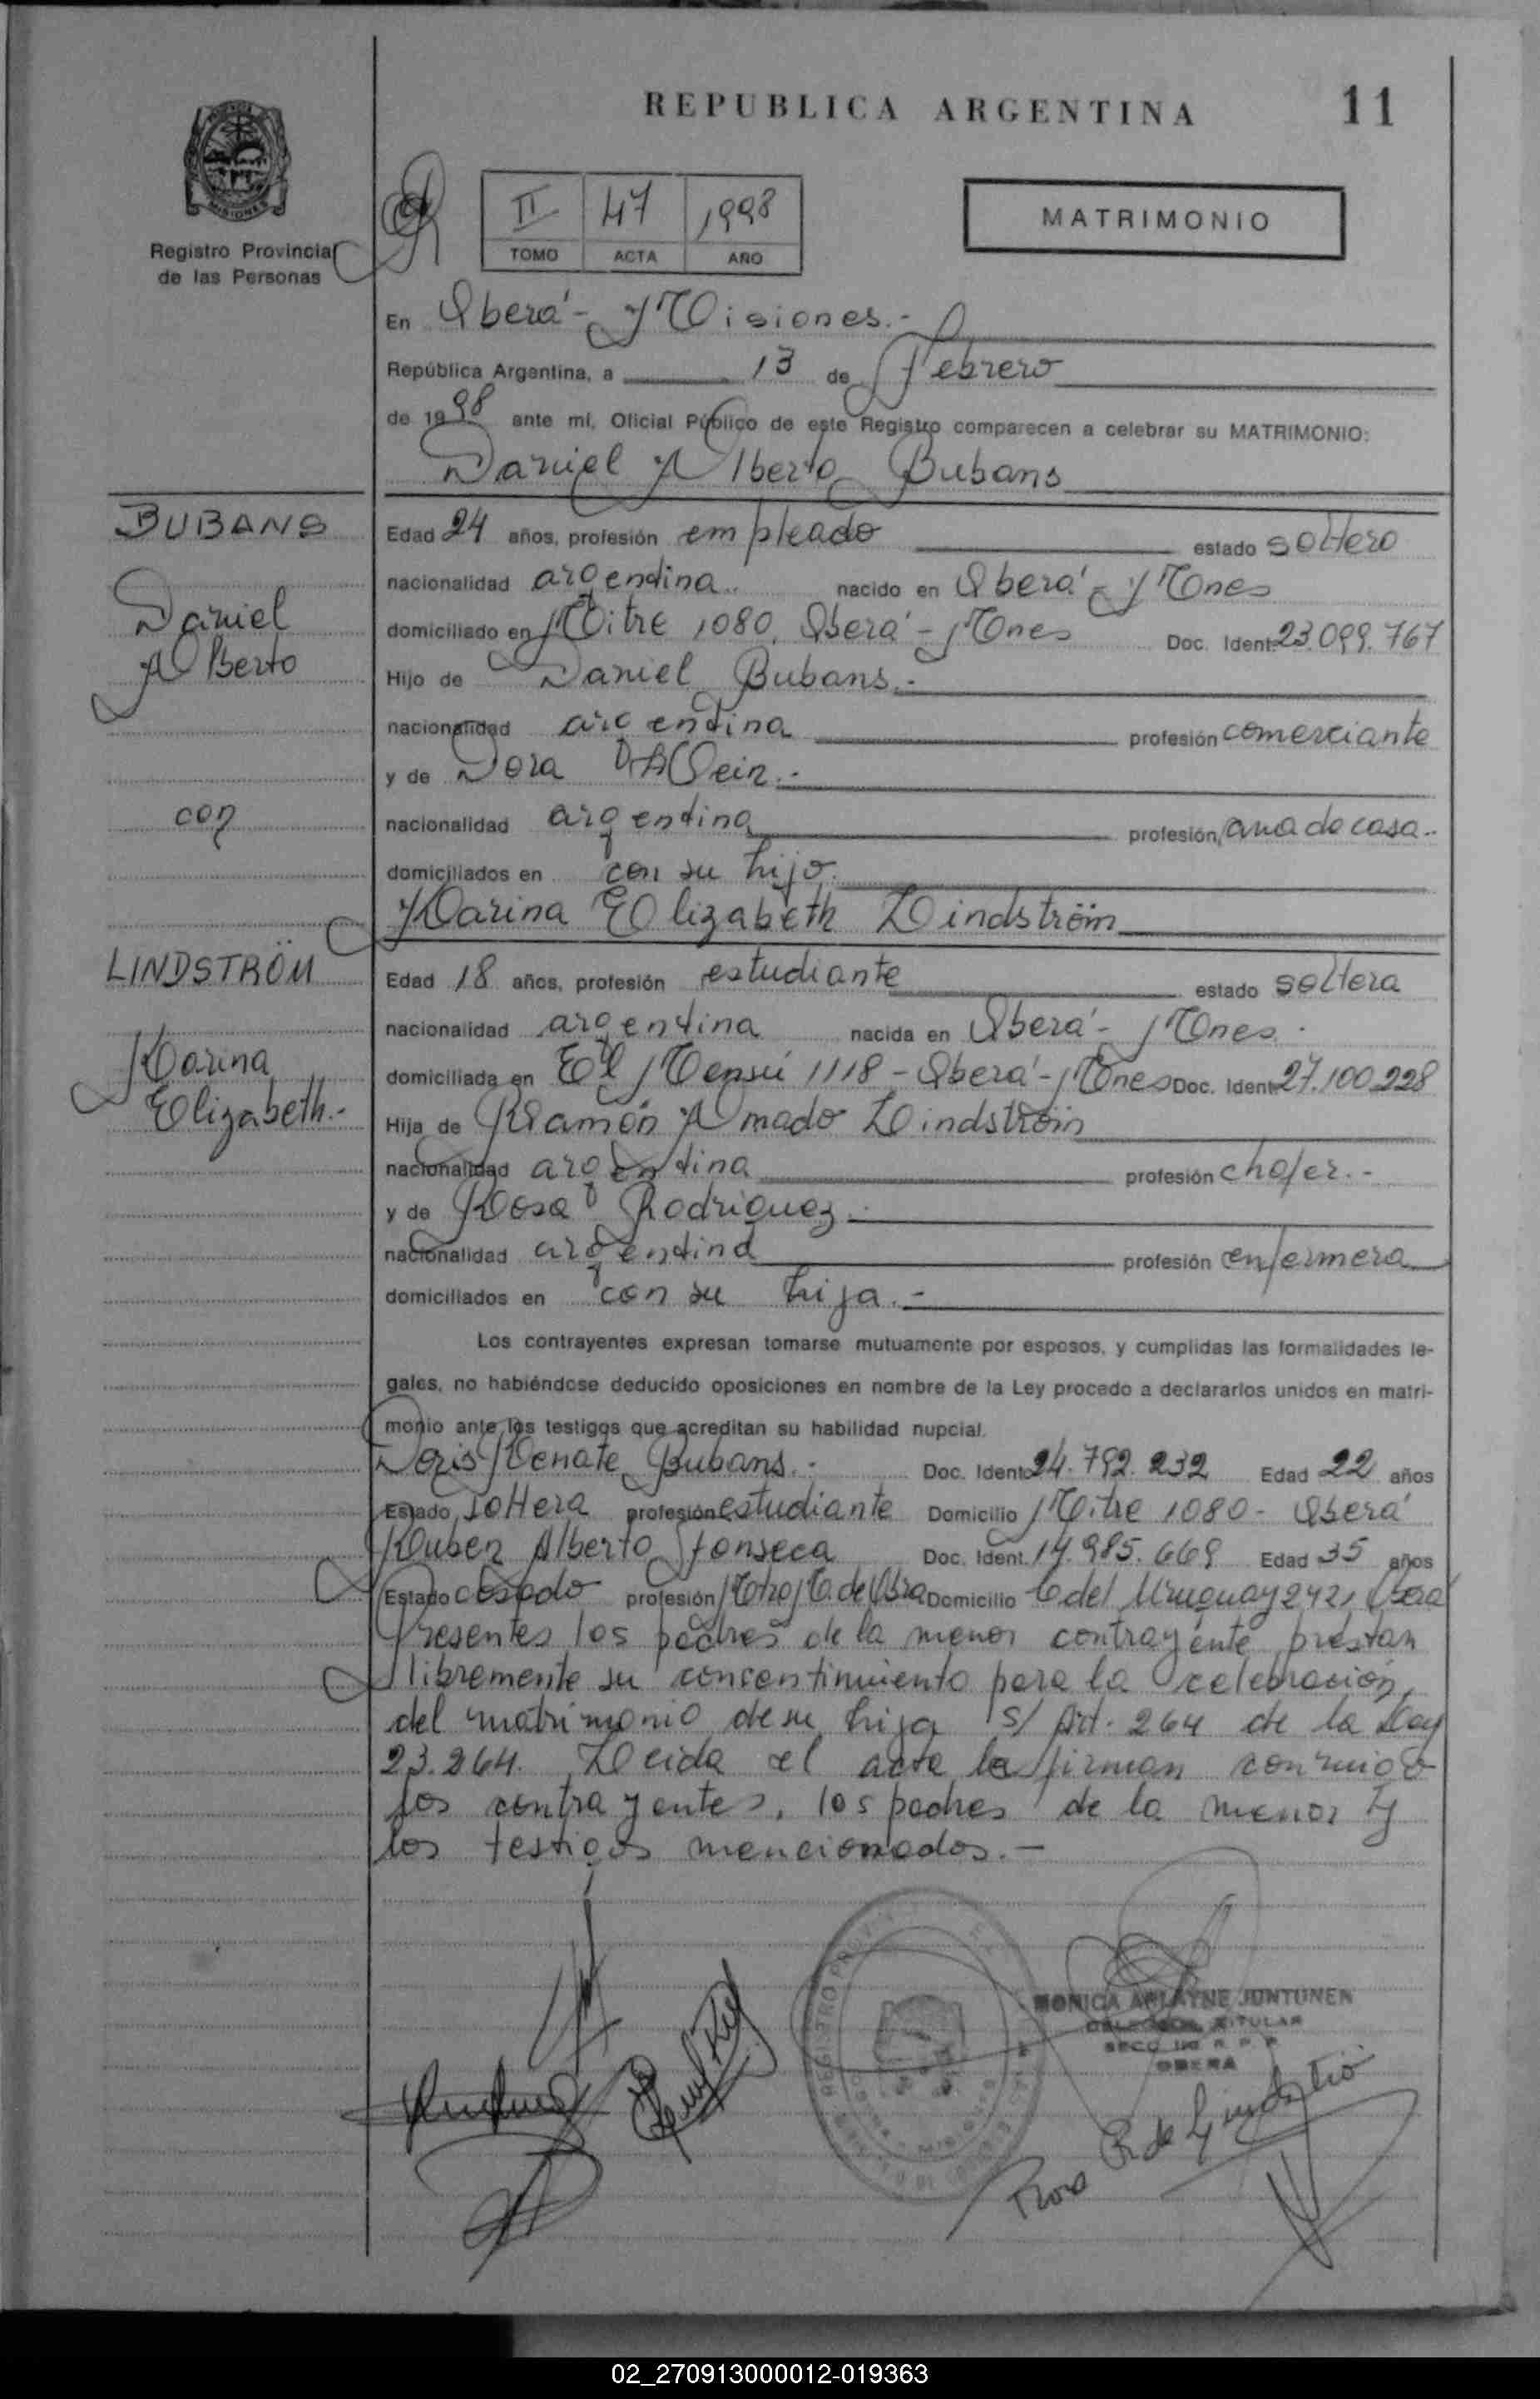 REPUBLICA ARGENTINA 11
MISIONES
Registro Provincial
de las Personas
II 47 1998
TOMO ACTA AÑO
MATRIMONIO
En Oberá - Misiones.-
República Argentina, a 13 de Febrero
de 1998 ante mí, Oficial Público de este Registro comparecen a celebrar su MATRIMONIO:
Daniel Alberto Bubans
BUBANS
Daniel
Alberto
con
LINDSTRÖM
Karina
Elizabeth.-
Edad 24 años, profesión empleado estado soltero
nacionalidad argentina.. nacido en Oberá - Mnes
domiciliado en Mitre 1080, Oberá - Mnes Doc. Ident. 23.099.767
Hijo de Daniel Bubans.-
nacionalidad argentina profesión comerciante
y de Dora
nacionalidad argentina profesión ama de casa..
domiciliados en con su hijo.
Karina Elizabeth Lindström
Edad 18 años, profesión estudiante estado soltera
nacionalidad argentina nacida en Oberá - Mnes.
domiciliada en El Mensú 1118 - Oberá - Mnes Doc. Ident. 27.100.228
Hija de Ramón Amado Lindström
nacionalidad argentina profesión chofer.-
y de Rosa Rodriguez.-
nacionalidad argentina profesión enfermera
domiciliados en con su hija.-
Los contrayentes expresan tomarse mutuamente por esposos, y cumplidas las formalidades le-
gales, no habiéndose deducido oposiciones en nombre de la Ley procedo a declararlos unidos en matri-
monio ante los testigos que acreditan su habilidad nupcial.
Doris Renate Bubans.- Doc. Ident. 24.792.232 Edad 22 años
Estado soltera profesión estudiante Domicilio Mitre 1080 - Oberá
Ruben Alberto Fonseca Doc. Ident. 14.985.669 Edad 35 años
Estado casado profesión Mtro M. de Obra Domicilio C del Uruguay 242, Oberá
Presentes los padres de la menor contrayente prestan
libremente su consentimiento para la celebración
del matrimonio de su hija s/ Art. 264 de la Ley
23.264. Leida el acta la firman conmigo
los contrayentes, los padres de la menor y
los testigos mencionados.-
MONICA JUNTUNEN
TITULAR
OBERA
Rosa R de Lindströ
02_270913000012-019363